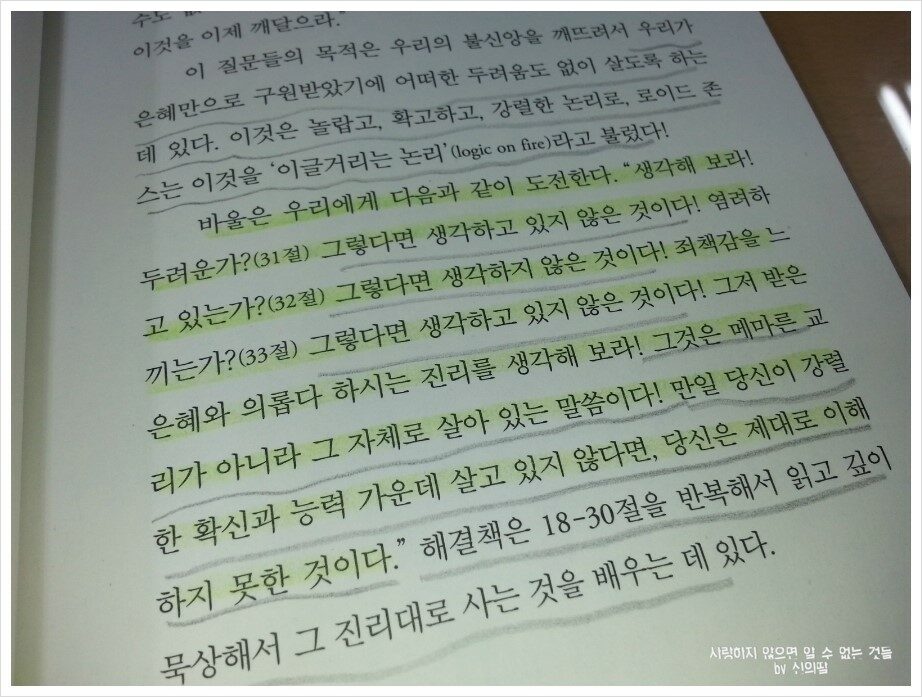 수도 없
이것을 이제 깨달으라.”
이 질문들의 목적은 우리의 불신앙을 깨뜨려서 우리가
은혜만으로 구원받았기에 어떠한 두려움도 없이 살도록 하는
데 있다. 이것은 놀랍고, 확고하고, 강렬한 논리로, 로이드 존
스는 이것을 ‘이글거리는 논리’(logic on fire)라고 불렀다!
바울은 우리에게 다음과 같이 도전한다. “생각해 보라!
두려운가?(31절) 그렇다면 생각하고 있지 않은 것이다! 염려하
고 있는가?(32절) 그렇다면 생각하지 않은 것이다! 죄책감을 느
끼는가?(33절) 그렇다면 생각하고 있지 않은 것이다! 그저 받은
은혜와 의롭다 하시는 진리를 생각해 보라! 그것은 메마른 교
리가 아니라 그 자체로 살아 있는 말씀이다! 만일 당신이 강렬
한 확신과 능력 가운데 살고 있지 않다면, 당신은 제대로 이해
하지 못한 것이다.” 해결책은 18-30절을 반복해서 읽고 깊이
묵상해서 그 진리대로 사는 것을 배우는 데 있다.
사랑하지 않으면 알 수 없는 것들
by 신의딸